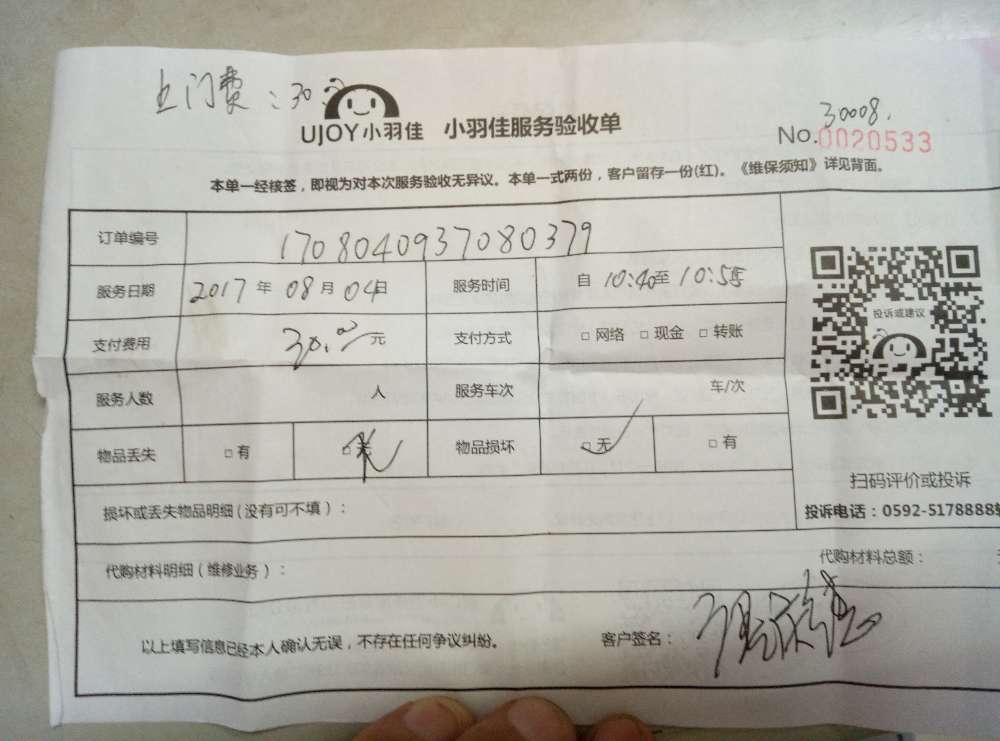 上门费：30.
30008.
UJOY小羽佳 小羽佳服务验收单 No.0020533
本单一经核签，即视为对本次服务验收无异议。本单一式两份，客户留存一份(红)。《维保须知》详见背面。
订单编号 1708040937080379
服务日期 2017年08月04日 服务时间 自10:40至10:55
支付费用 30.00元 支付方式 □网络 □现金 □转账
服务人数 人 服务车次 车/次
物品丢失 □有 □无 物品损坏 □无 □有
投诉或建议
扫码评价或投诉
投诉电话：0592-5178888转
损坏或丢失物品明细(没有可不填)：
代购材料明细(维修业务)： 代购材料总额：
以上填写信息已经本人确认无误，不存在任何争议纠纷。 客户签名：